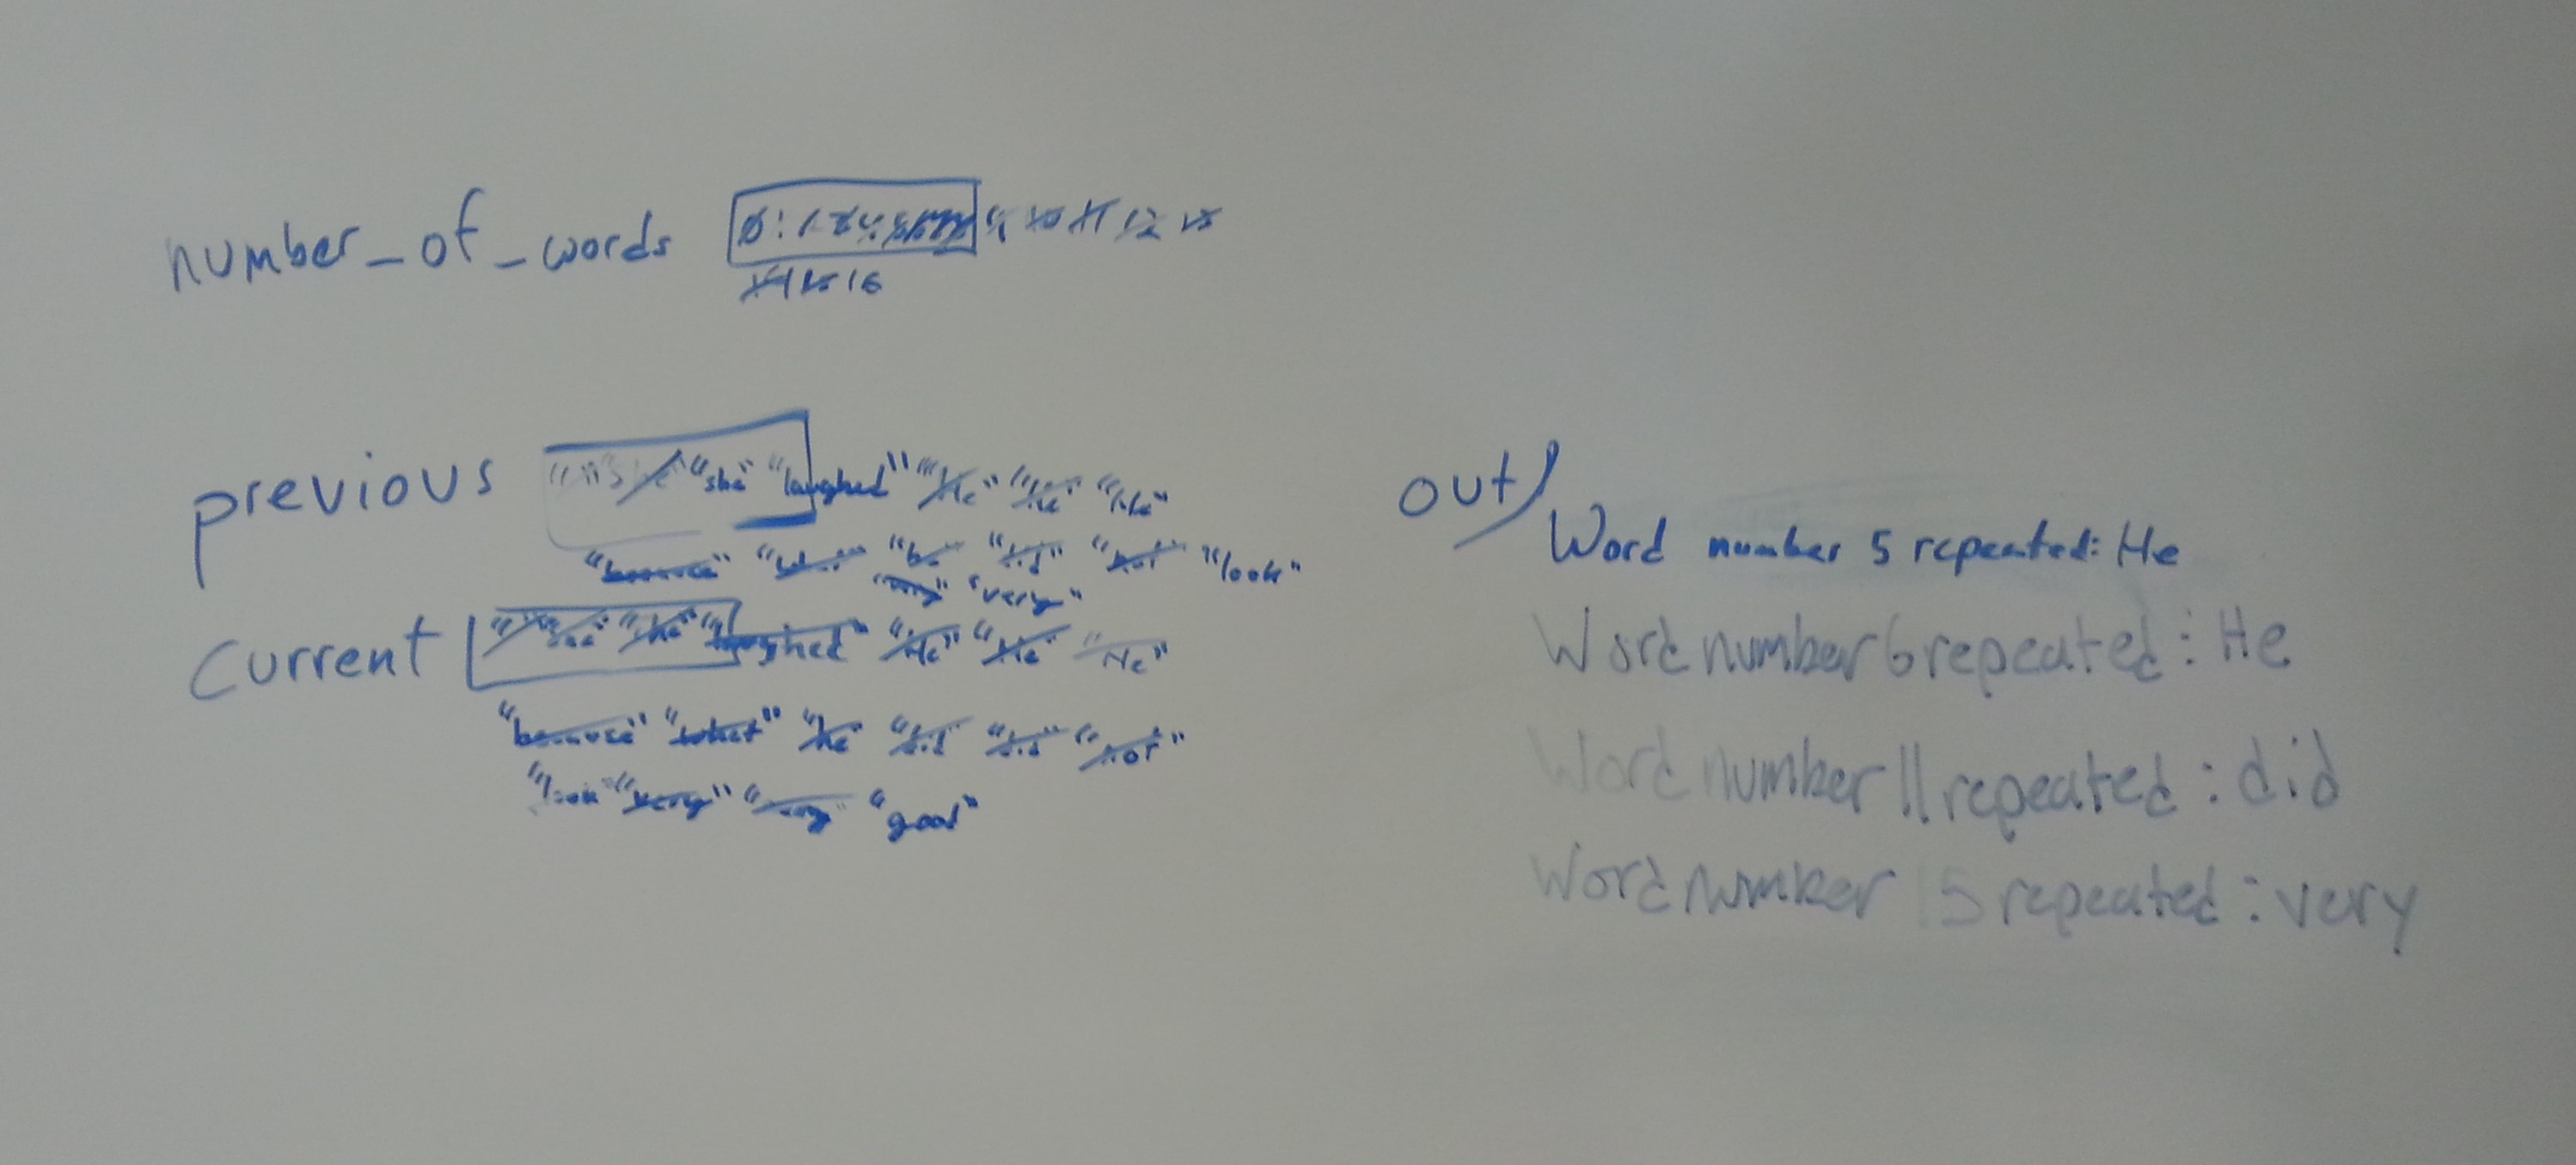 number_of_words 0 1 9 10 11 12 13
14 15 16
previous " " "she" "laughed" "He" "He" "He"
"because" "what" "he" "did" "not" "look"
"very" "very"
current "she" "laughed" "He" "He" "He"
"because" "what" "he" "did" "did" "not"
"look" "very" "very" "good"
out
Word number 5 repeated: He
Word number 6 repeated: He
Word number 11 repeated: did
Word number 15 repeated: very